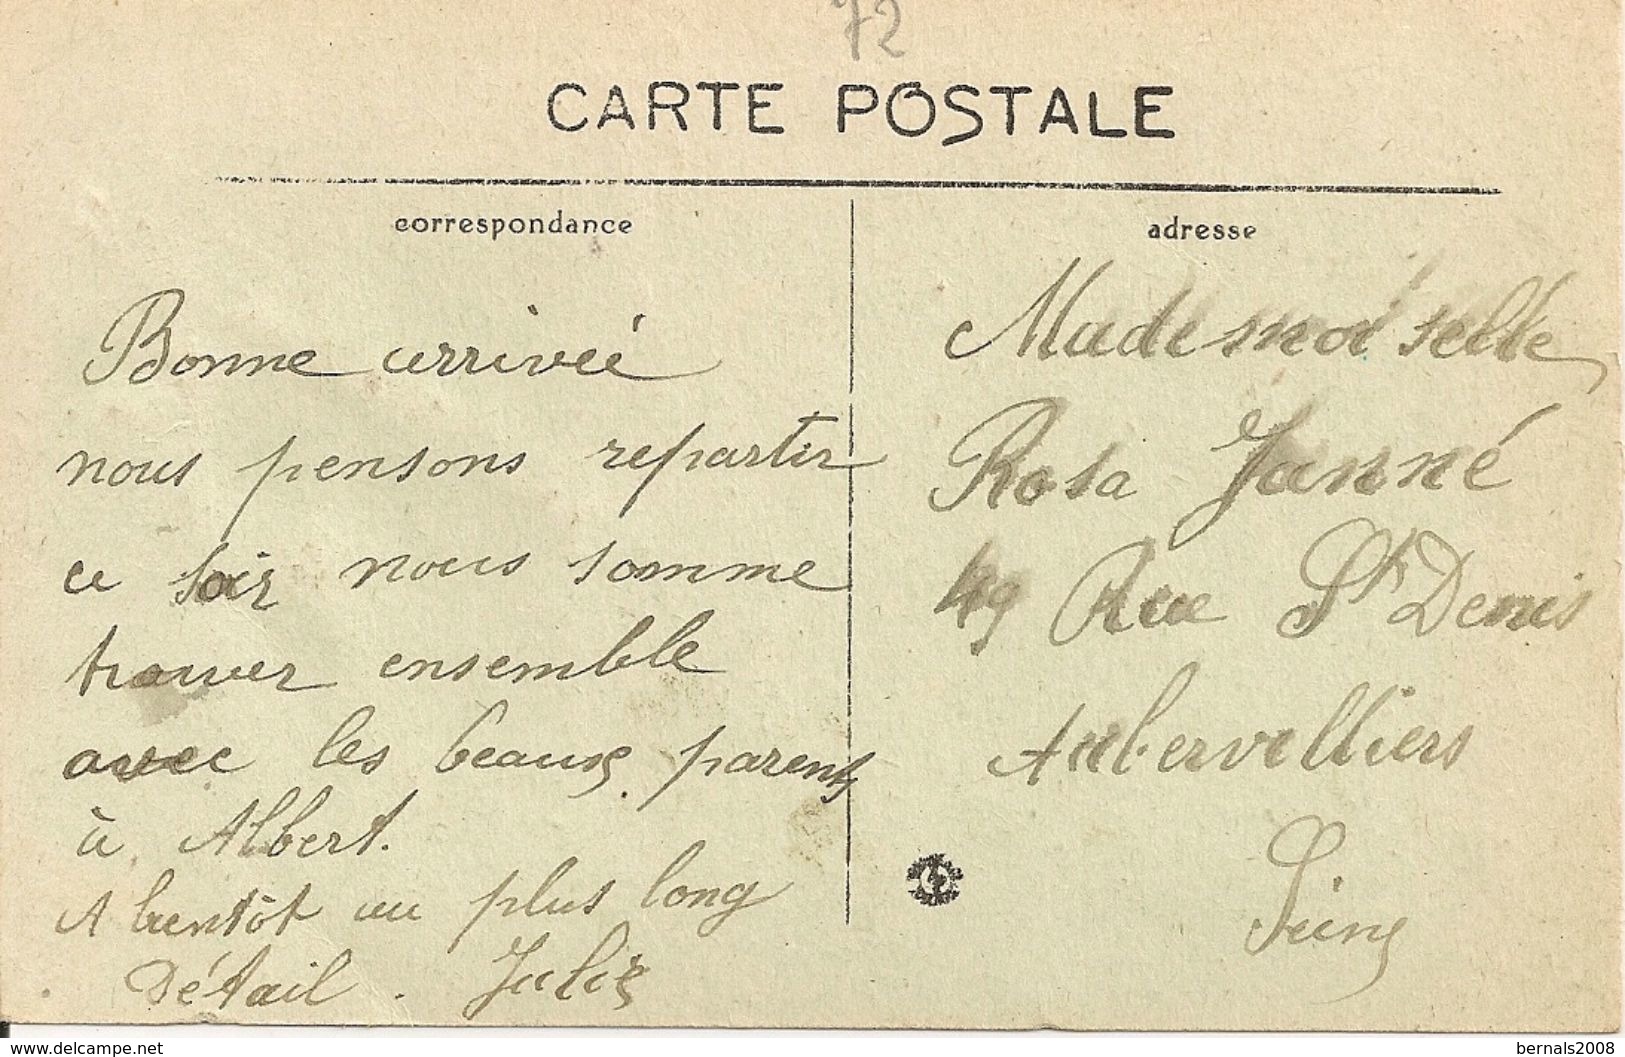 72
CARTE POSTALE
correspondance
adresse
Bonne arrivée
nous pensons repartir
ce soir nous somme
trouver ensemble
avec les beaux parents
à Albert.
A bientôt un plus long
Détail. Julie
Mademoiselle
Rosa Janné
49 Rue St Denis
Aubervelliers
Seine
www.delcampe.net
bernals2008